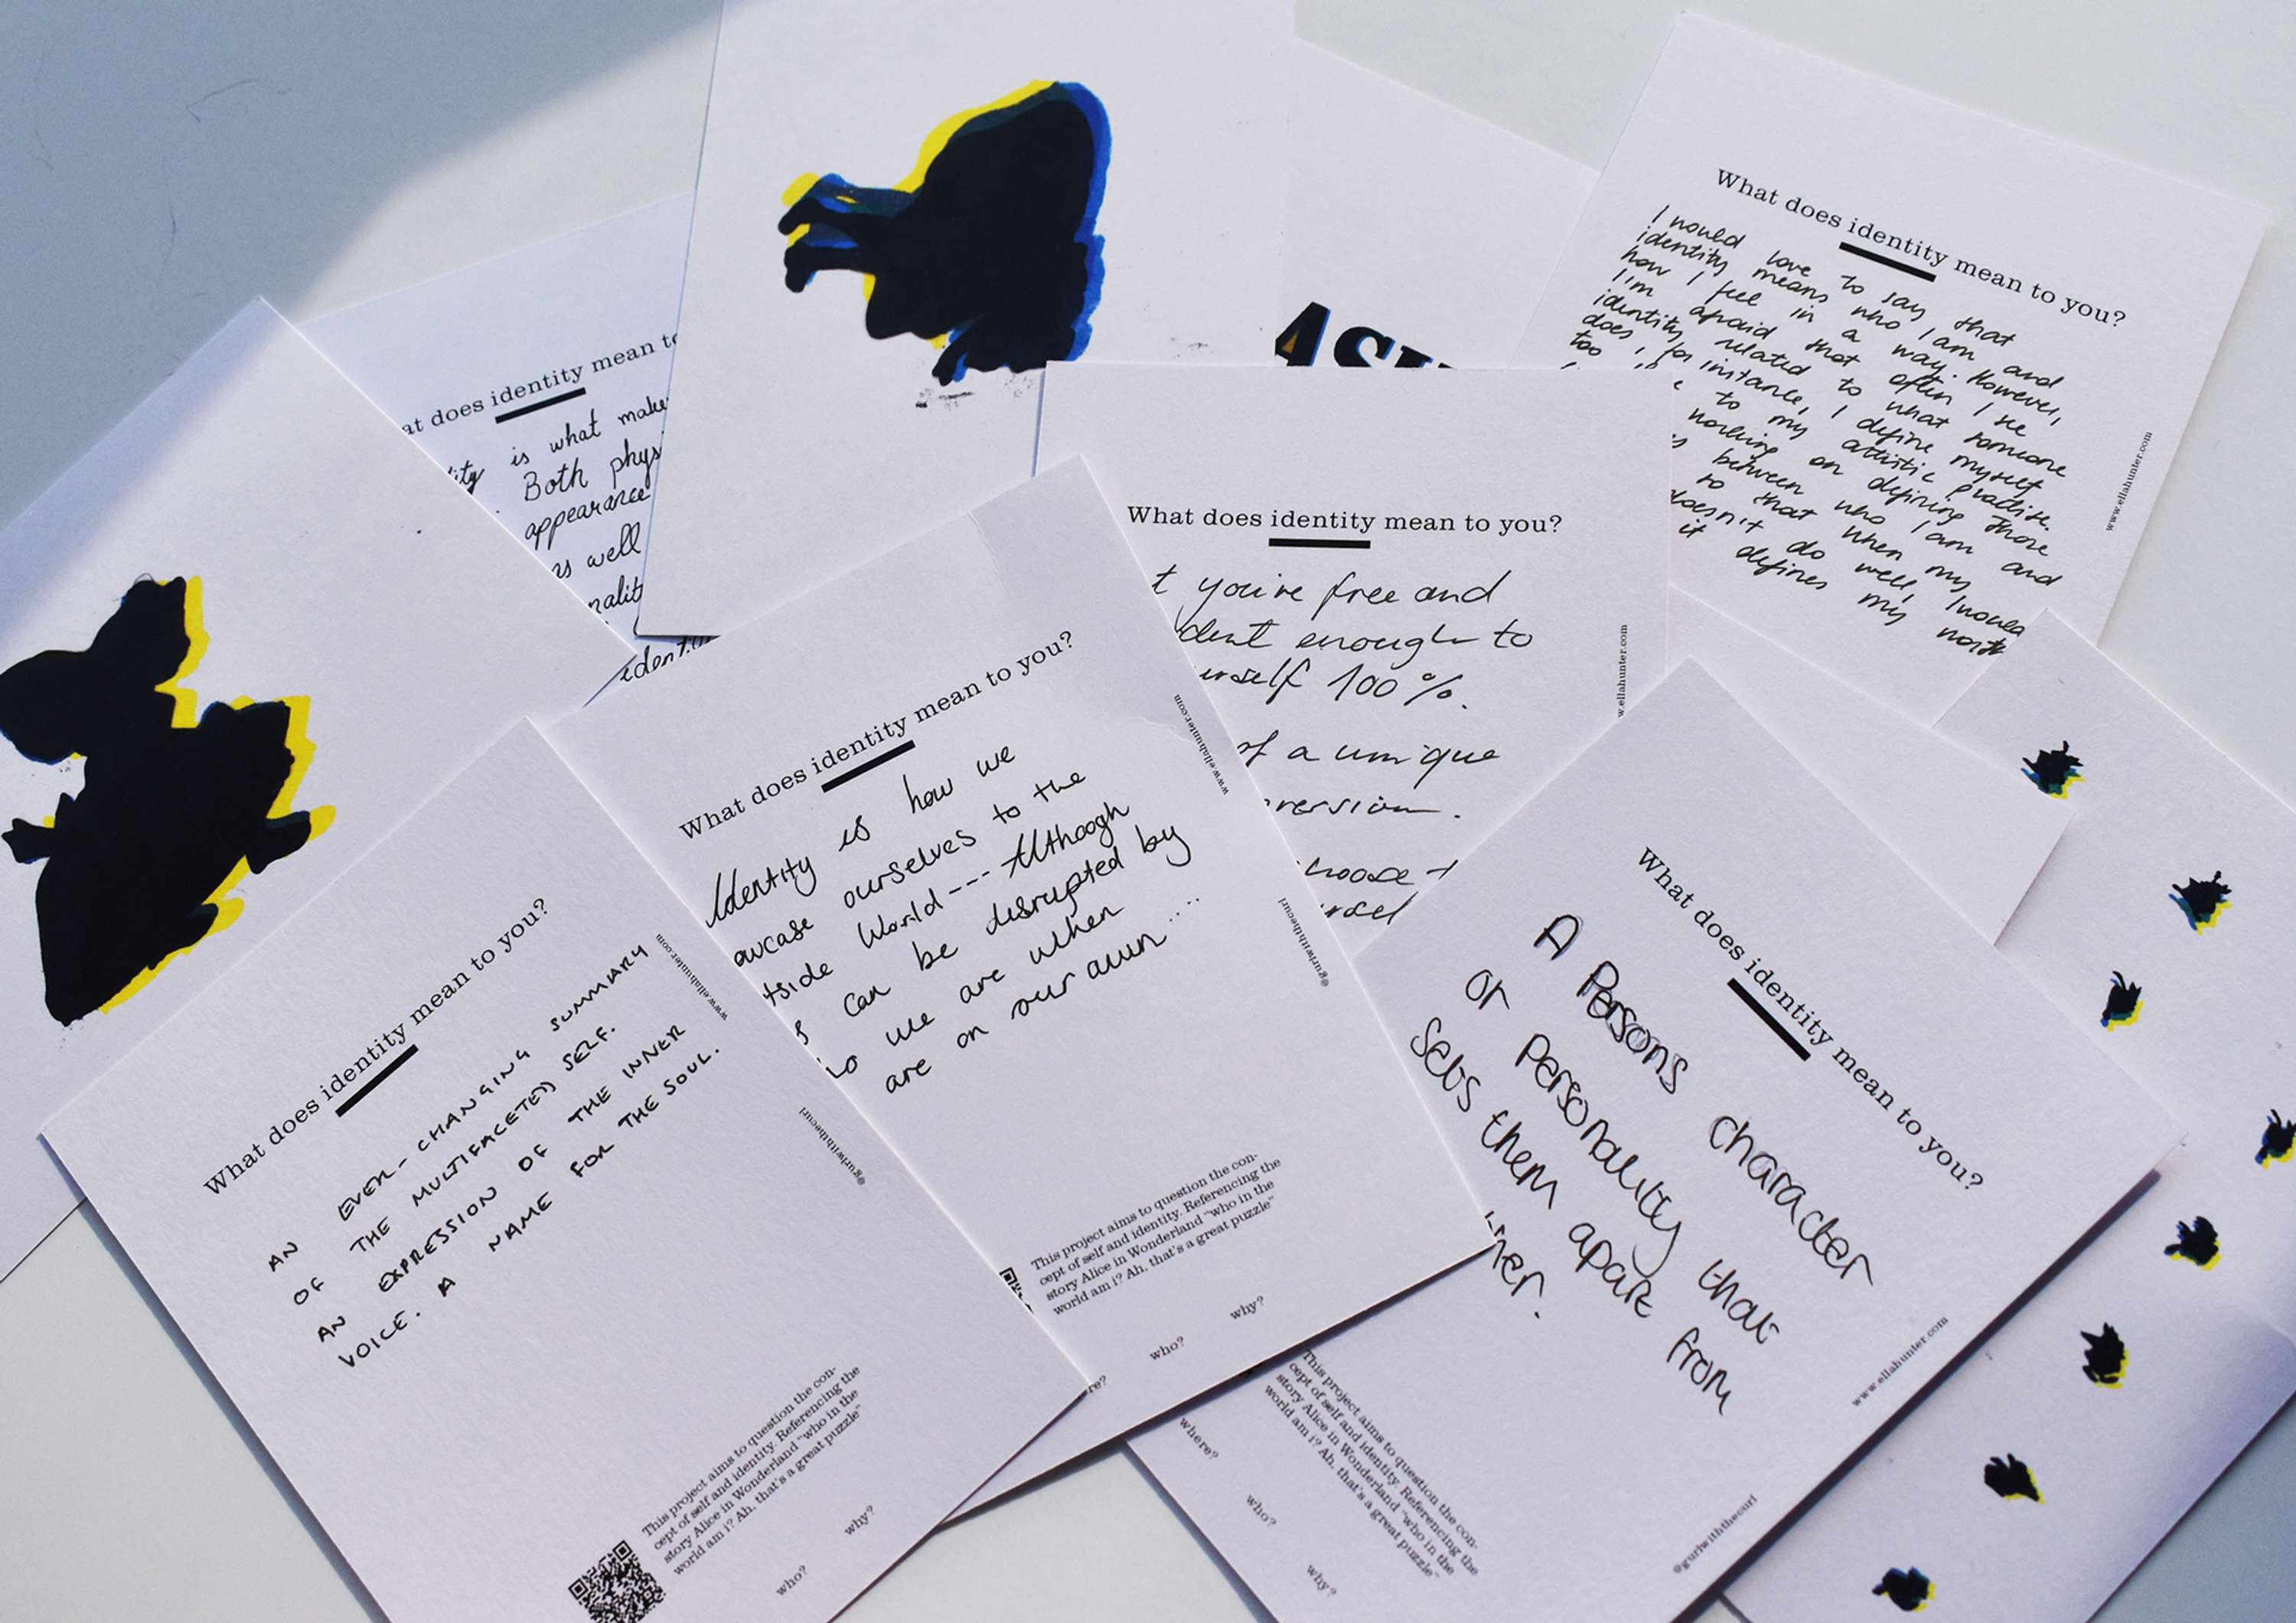 at does identity mean to
is what make
Both phys
appearance
as well
What does identity mean to you?
I would love to say that
identity means who I am and
how I feel in a way. However,
I'm afraid that often I see
identity related to what someone
does, for instance, I define myself
too
to my artistic practise.
working on defining those
between who I am and
so that when my
doesn't do well, I would
it defines my worth
www.ellahunter.com
What does identity mean to you?
t you're free and
dent enough to
urself 100%.
of a unique
version.
choose
w.ellahunter.com
What does identity mean to you?
Identity is how we
owcase ourselves to the
tside World --- Although
can be disrupted by
we are when
are on our own....
www.ellahunter.com
@gurlwiththecurl
This project aims to question the con-
cept of self and identity. Referencing the
story Alice in Wonderland "who in the
world am i? Ah, that's a great puzzle"
who?
why?
What does identity mean to you?
AN EVER-CHANGING SUMMARY
OF THE MULTIFACETED SELF.
AN EXPRESSION OF THE INNER
VOICE. A NAME FOR THE SOUL.
www.ellahunter.com
@gurlwiththecurl
This project aims to question the con-
cept of self and identity. Referencing the
story Alice in Wonderland "who in the
world am i? Ah, that's a great puzzle"
who?
why?
What does identity mean to you?
A Persons character
or personality that
sets them apart from
www.ellahunter.com
@gurlwiththecurl
This project aims to question the con-
cept of self and identity. Referencing the
story Alice in Wonderland "who in the
world am i? Ah, that's a great puzzle"
where?
who?
why?